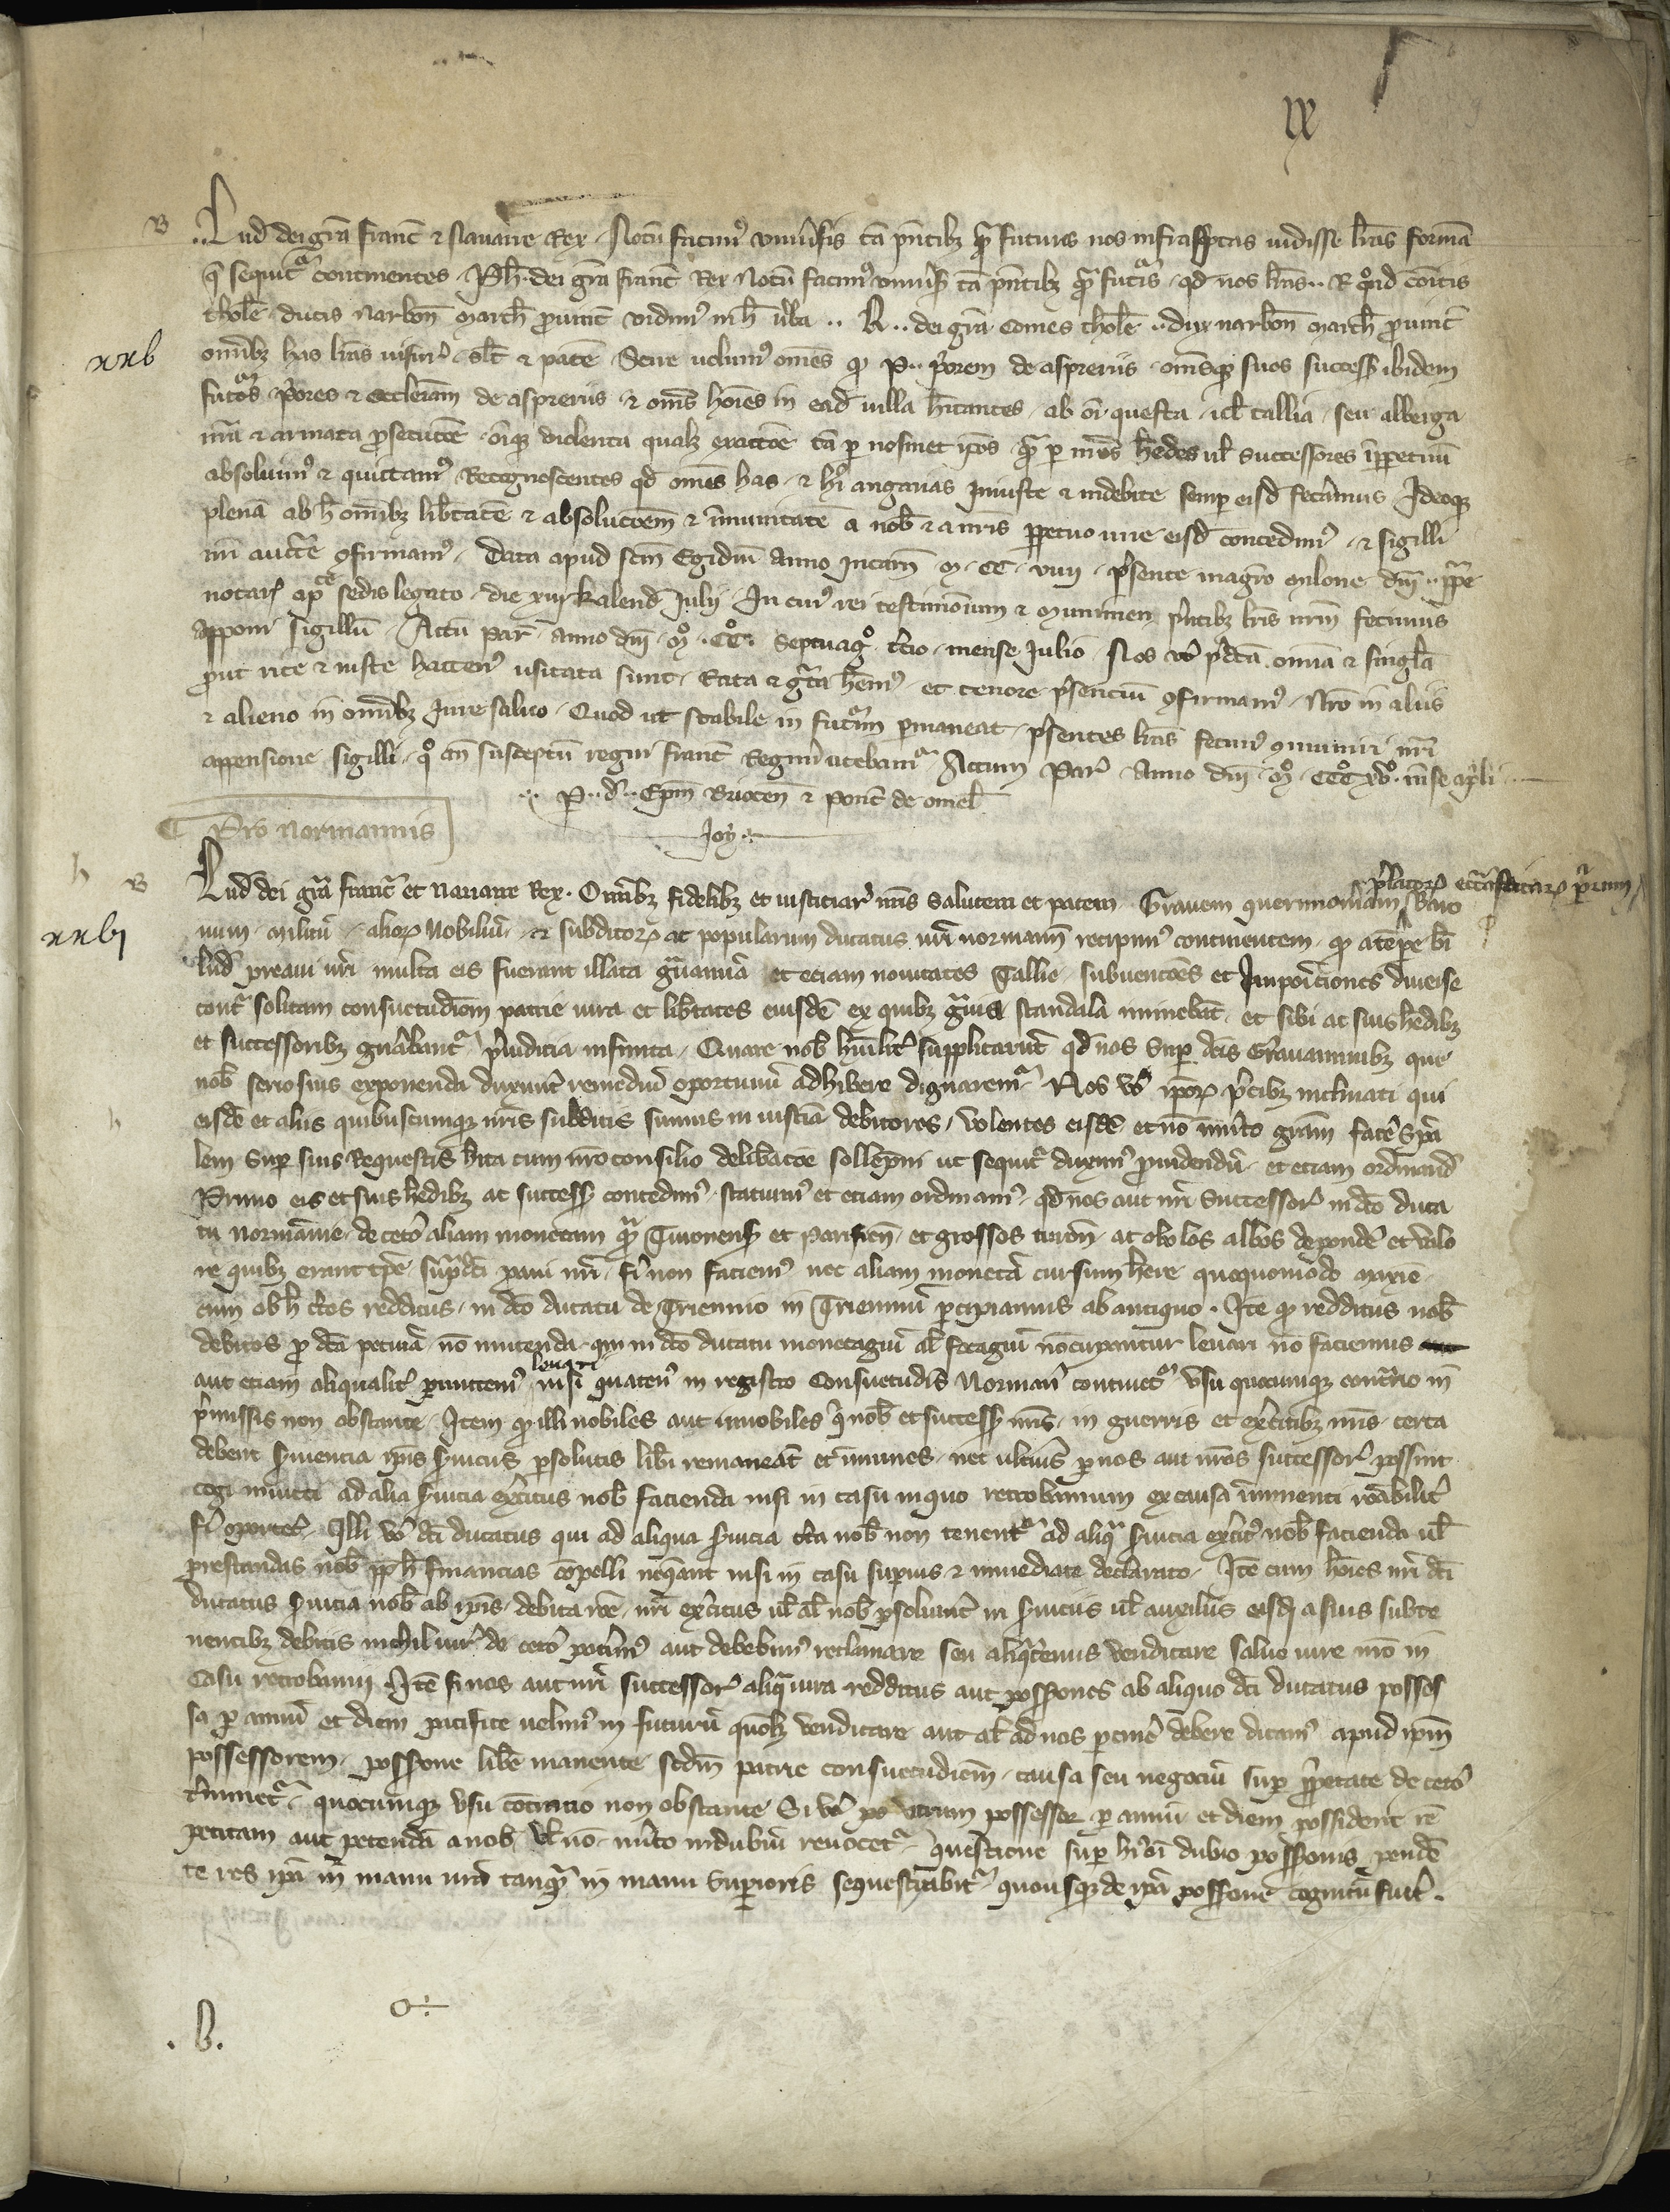 IX
B
..Lud dei gra Franc et Navarre Rex. Notum facimus universis tam presentibus quam futuris nos infrascriptas vidisse litteras formam
que sequitur continentes. Ph. dei gra Franc Rex Notum facimus universis tam presentibus quam futuris quod nos litteras .. R. quondam comitis
Thole ducis Narbon March Provinc vidimus in hec verba .. R .. dei gra comes Thole .. dux Narbon March Provinc
xxv
omnibus has litteras visuris salutem et pacem Scire volumus omnes quod P.. priorem de aspreriis omnesque suos successores ibidem
futuros priores et ecclesiam de aspreriis et omnes homines in eadem villa habitantes ab omni questa vel tallia seu alberga
 et armata prosecutione omnique violenta qualibet exactione tam per nosmet ipsos quam per nostros heredes vel successores imperpetuum
absolvimus et quittamus Recognoscentes quod omnes has et huiusmodi angarias iniuste et indebite semper eisdem fecimus Ideoque
plenam ab hiis omnibus libertatem et absolucionem et immunitatem a nobis et a nostris perpetuo iure eisdem concedimus et sigilli
nostri auctoritate confirmamus. Data apud sanctum Egidium anno Incarn M CC VIIII presente magistro Milone domini .. pape
notario apostolice sedis legato die XIII kalend Julii. In cuius rei testimonium et munimen presentibus litteris nostrum fecimus
apponi sigillum. Actum Par anno domini M CC septuag tercio mense Julio Nos vero predicta omnia et singula
prout rite et iuste hactenus usitata sunt Rata et grata habemus et tenore presencium confirmamus Nostro in aliis
et alieno in omnibus Jure salvo. Quod ut stabile in futurum permaneat presentes litteras fecimus communiri nostri
appensione sigilli quo ante susceptum regni Franc Regimen utebamur Actum Par Anno domini M CCC XV mense aprili
P.. d.. Epm Briocen et Ponc de omel
Joy
Pro normannis
B
Lud dei gra Franc et Navarre Rex. Omnibus fidelibus et iusticiariis nostris salutem et pacem. Gravem querimoniam prelatorum ecclesiasticarum personarum Baro
xxvj
num militum aliorum Nobilium et subditorum ac popularium ducatus nostri normann recipimus continentem quod a tempore beati
Lud proavi nostri multa eis fuerant illata gravamina et etiam novitates Tallie subvenciones et Imposiciones diverse
contra solitam consuetudinem patrie iura et libertates eiusdem ex quibus gravia scandala iminebant et sibi ac suis heredibus
et successoribus generabantur preiudicia infinita. Quare nobis humiliter supplicarunt quod nos super dictis Gravaminibus que
nobis seriosius exponenda duxerunt remedium oportunum adhibere dignaremur. Nos vero ipsorum precibus inclinati qui
eisdem et aliis quibuscumque nostris subditis sumus in iusticia debitores volentes eisdem et non immerito graciam facere specia
lem super suis Requestis habita cum nostro consilio deliberacione sollempni ut sequitur duximus providendum et etiam ordinand
Primo eis et suis heredibus ac success concedimus statuimus et etiam ordinamus quod nos aut nostri Successores in dicto duca
tu Normannie de cetero aliam monetam quam Turonens et Parisien et grossos turon ac obolos albos de pondere et valo
re quibus erant tempore supradicti proavi nostri fieri non faciemus nec aliam monetam cursum habere quoquomodo maxime
cum ob hoc certos redditus in dicto ducatu de Triennio in Triennium percipiamus ab antiquo. Item quod redditus nobis
debitos pro dicta pecunia non mutenda qui in dicto ducatu monetagium vel focagium nuncupantur levari non faciemus
aut etiam aliqualiter permittemus levari nisi quatenus in registro Consuetudinis Normann continetur usu quocumque contrario in
premissis non obstante. Item quod illi nobiles aut innobiles qui nobis et success nostris in guerris et exercitibus nostris certa
debent servicia ipsis serviciis persolutis liberi remaneant et immunes nec ulterius per nos aut nostros successores possint
cogi inviti ad alia servicia exercitus nobis facienda nisi in casu in quo retrobannum ex causa imminenti racionabiliter
fieri oporteret. Illi vero dicti ducatus qui ad aliqua servicia certa nobis non tenentur ad aliqua servicia exercitus nobis facienda vel
prestandas nobis propter hoc financias compelli nequeant nisi in casu superius et immediate declarato. Item cum homines nostri dicti
ducatus servicia nobis ab ipsis debita racione nostri exercitus vel aliter nobis persolverint in serviciis vel auxiliis eisdem a suis subte
nentibus debitis nichil iuris de cetero poterimus aut debebimus reclamare seu aliquatenus vendicare salvo iure nostro in
Casu retrobanni. Item si nos aut nostri successores aliqua iura redditus aut possessiones ab aliquo dicti ducatus posses
sa per annum et diem pacifice velimus in futurum quomodolibet vendicare aut aliter ad nos pertinere debere dicamus apud ipsum
possessorem possessione libere manente secundum patrie consuetudinem causa seu negocium super proprietate de cetero
terminetur quocumque usu contrario non obstante Si vero utrum possessor per annum et diem possiderit rem
petitam aut petendam a nobis vel non merito in dubium revocetur questione super huiusmodi dubio possessionis penden
te res ipsa in manu nostra tanquam in manu Superioris sequestrabitur quousque de ipsa possessione cognitum fuerit.
. b.